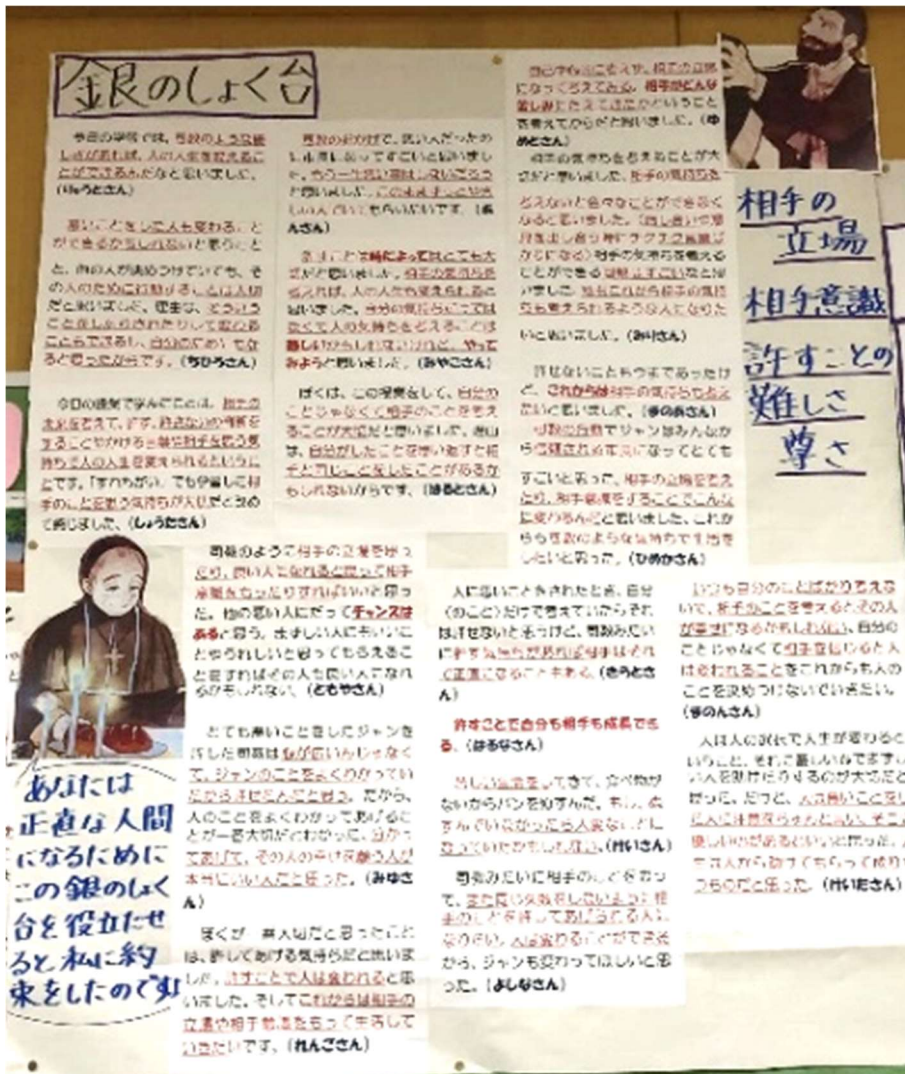 銀のしょく台
今日の学習では、司教のような優
しさがあれば、人の人生を変えるこ
とができるんだなと思いました。
(りょうとさん)
悪いことをした人も変わること
ができるかもしれないと思うこと
と、他の人が決めつけていても、そ
の人のために行動することは大切
だと思いました。理由は、そういう
ことをしたりされたりして変わる
こともできるし、自分のためにもな
ると思ったからです。(ちひろさん)
今日の授業で学んだことは、相手の
未来を考えて、許す、許さないの判断を
することやかける言葉や相手を思う気
持ちで人の人生を変えられるというこ
とです。「すれちがい」でも学習した相
手のことを思う気持ちが大切だと改め
て感じました。(しょうたさん)
司教のおかげで、悪い人だったの
に市長になってすごいと思いまし
た。もう一生悪い事はしないだろう
と思いました。このままずっとやさ
しい人でいてもらいたいです。
んさん)
許すことは時によってはとても大
切だと思いました。相手の気持ちを
考えれば、人の人生も変えられると
思いました。自分の気持ちだけでは
なくて人の気持ちを考えることは
難しいかもしれないけれど、やって
みようと思いました。(みやこさん)
ぼくは、この授業をして、自分の
ことじゃなくて相手のことを考え
ることが大切だと思いました。理由
は、自分がしたことを思い返すと相
手と同じことをしたことがあるか
もしれないからです。(はるとさん)
自己中心的に考えず、相手の立場
になって考えてみる。相手がどんな
苦しみにたえてきたかということ
を考えてからだと思いました。(ゆ
めとさん)
相手の気持ちを考えることが大
切だと思いました。相手の気持ちを
考えないと色々なことができなく
なると思いました。(話し合いや意
見を出し合う時にチクチク言葉ば
かりになる)相手の気持ちを考える
ことができる司教はすごいなと思
いました。私もこれから相手の気持
ちも考えられるような人になりた
いと思いました。(みりさん)
許せないことも今まであったけ
ど、これからは相手の気持ちも考え
たいと思いました。
司教の行動でジャンはみんなか
ら信頼される市長になってとても
すごいと思った。相手の立場を考え
たり、相手意識をすることでこんな
に変わるんだと思いました。これか
らも司教のような気持ちで生活を
したいと思った。(ひめかさん)
相手の
立場
相手意識
許すことの
難しさ
尊さ
司教のように相手の立場を思っ
たり、良い人になれると思って相手
意識をもったりすればいいと思っ
た。他の悪い人にだってチャンスは
あると思う。まずしい人にもいいこ
とやうれしいと思ってもらえるこ
とをすればその人も良い人になれ
るかもしれない。(ともやさん)
とても悪いことをしたジャンを
許した司教は心が広いんじゃなく
て、ジャンのことをよくわかってい
たから許せたんだと思う。だから、
人のことをよくわかってあげるこ
とが一番大切だとわかった。分かっ
てあげて、その人の幸せを願う人が
本当にいい人だと思った。(みゆさ
ん)
ぼくが一番大切だと思ったこと
は、許してあげる気持ちだと思いま
した。許すことで人は変われると思
いました。そしてこれからは相手の
立場や相手意識をもって生活して
いきたいです。(れんごさん)
人に悪いことをされたとき、自分
(のこと)だけで考えていたらそれ
は許せないと思うけど、司教みたい
に許す気持ちがあれば相手はそれ
で正直になることもある。(きらとさ
ん)
許すことで自分も相手も成長でき
る。(はるなさん)
苦しい生活をしてきて、食べ物が
ないからパンをぬすんだ。もし、ぬ
すんでいなかったら大変なことに
なっていたかもしれない。(けいさん)
司教みたいに相手のことを思っ
て、また同じ失敗をしないように相
手のことを許してあげられる人に
なりたい。人は変わることができる
から、ジャンも変わってほしいと思
った。(よしなさん)
いつも自分のことばかり考えな
いで、相手のことを考えるとその人
が幸せになるかもしれない。自分の
ことじゃなくて相手を信じると人
は変われることをこれからも人の
ことを決めつけないでいきたい。
(ゆのんさん)
人は人の選択で人生が変わると
いうこと、それに
い人を助けたりするのが大切だと
(けいたさん)
あなたは
正直な人間
になるために
この銀のしょく
台を役立たせ
ると、私に約
束をしたのです。